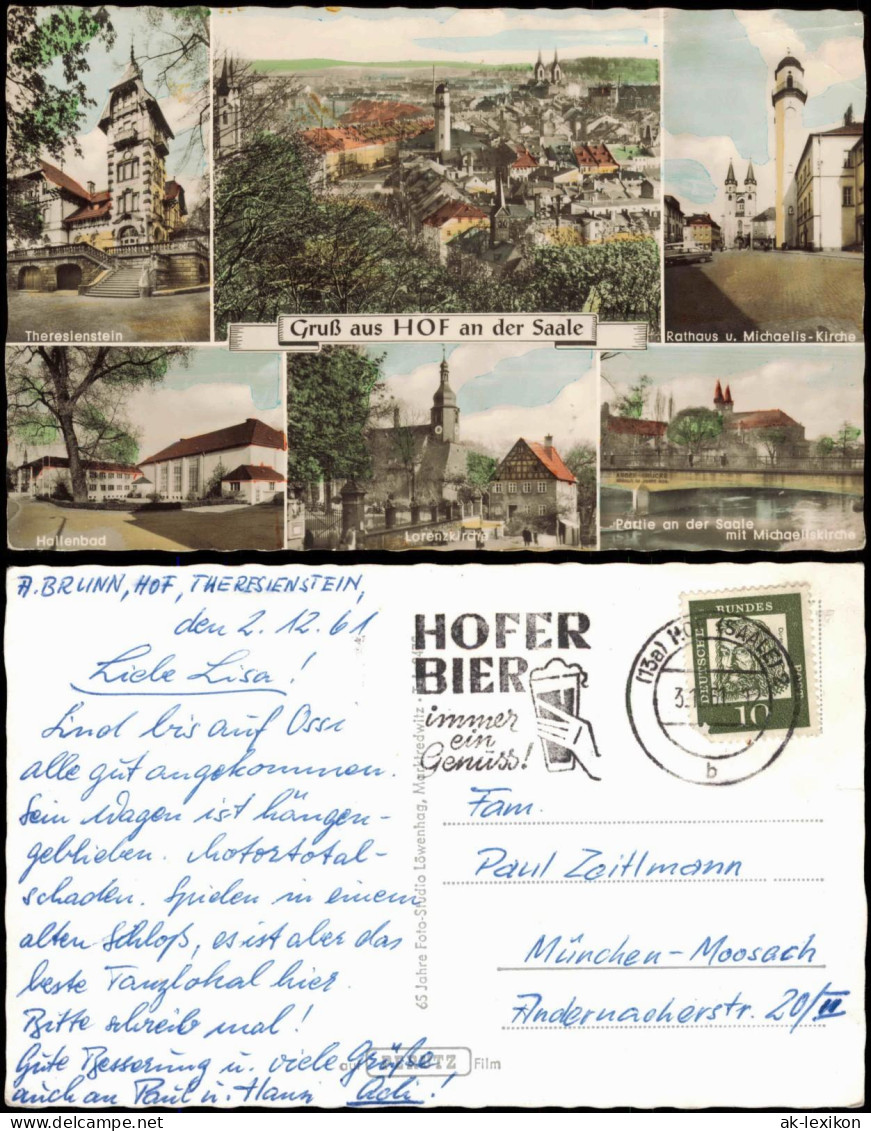 Theresienstein
Gruß aus HOF an der Saale
Rathaus u. Michaelis-Kirche
Hallenbad
Lorenzkirche
Partie an der Saale
mit Michaeliskirche
A. BRUNN, HOF, THERESIENSTEIN,
den 2.12.61
Liebe Lisa!
Sind bis auf Ossi
alle gut angekommen.
Sein Wagen ist hängen-
geblieben. Motortotal-
schaden. Spielen in einem
alten Schloß, es ist aber das
beste Tanzlokal hier.
Bitte schreib mal!
Gute Besserung u. viele Grüße
auch an Paul u. Hansi Adi!
65 Jahre Foto-Studio Löwenhag, Marktredwitz
auf PERUTZ Film
HOFER
BIER
immer
ein
Genuss!
(13a) HOF (SAALE) 2
b
DEUTSCHE BUNDESPOST
10
Fam.
Paul Zeitlmann
München-Moosach
Andernacherstr. 20/II
ak-lexikon